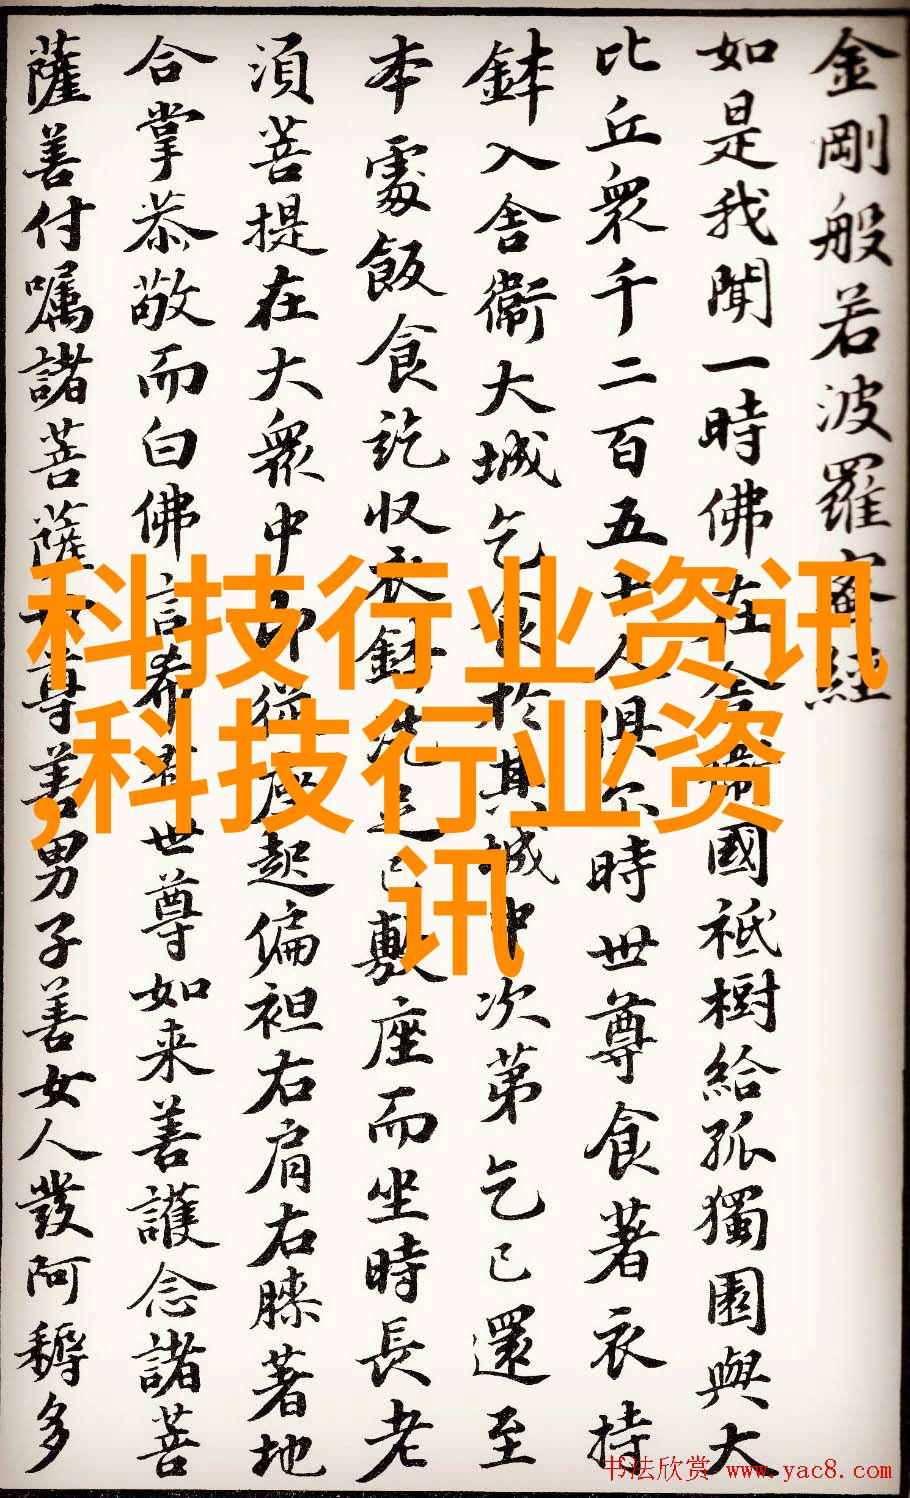 金剛般若波羅蜜經
如是我聞一時佛在舍衛國祇樹給孤獨園與大
比丘衆千二百五十人俱尒時世尊食著衣持
鉢入舍衛大城乞食於其城中次第乞已還至
本處飯食訖收衣鉢洗足已敷座而坐時長老
須菩提在大衆中即從座起偏袒右肩右膝著地
合掌恭敬而白佛言希有世尊如来善護念諸菩
薩善付嘱諸菩薩世尊善男子善女人發阿耨多
科技行业资讯
,科技行业资
讯
书法欣赏 www.yac8.com